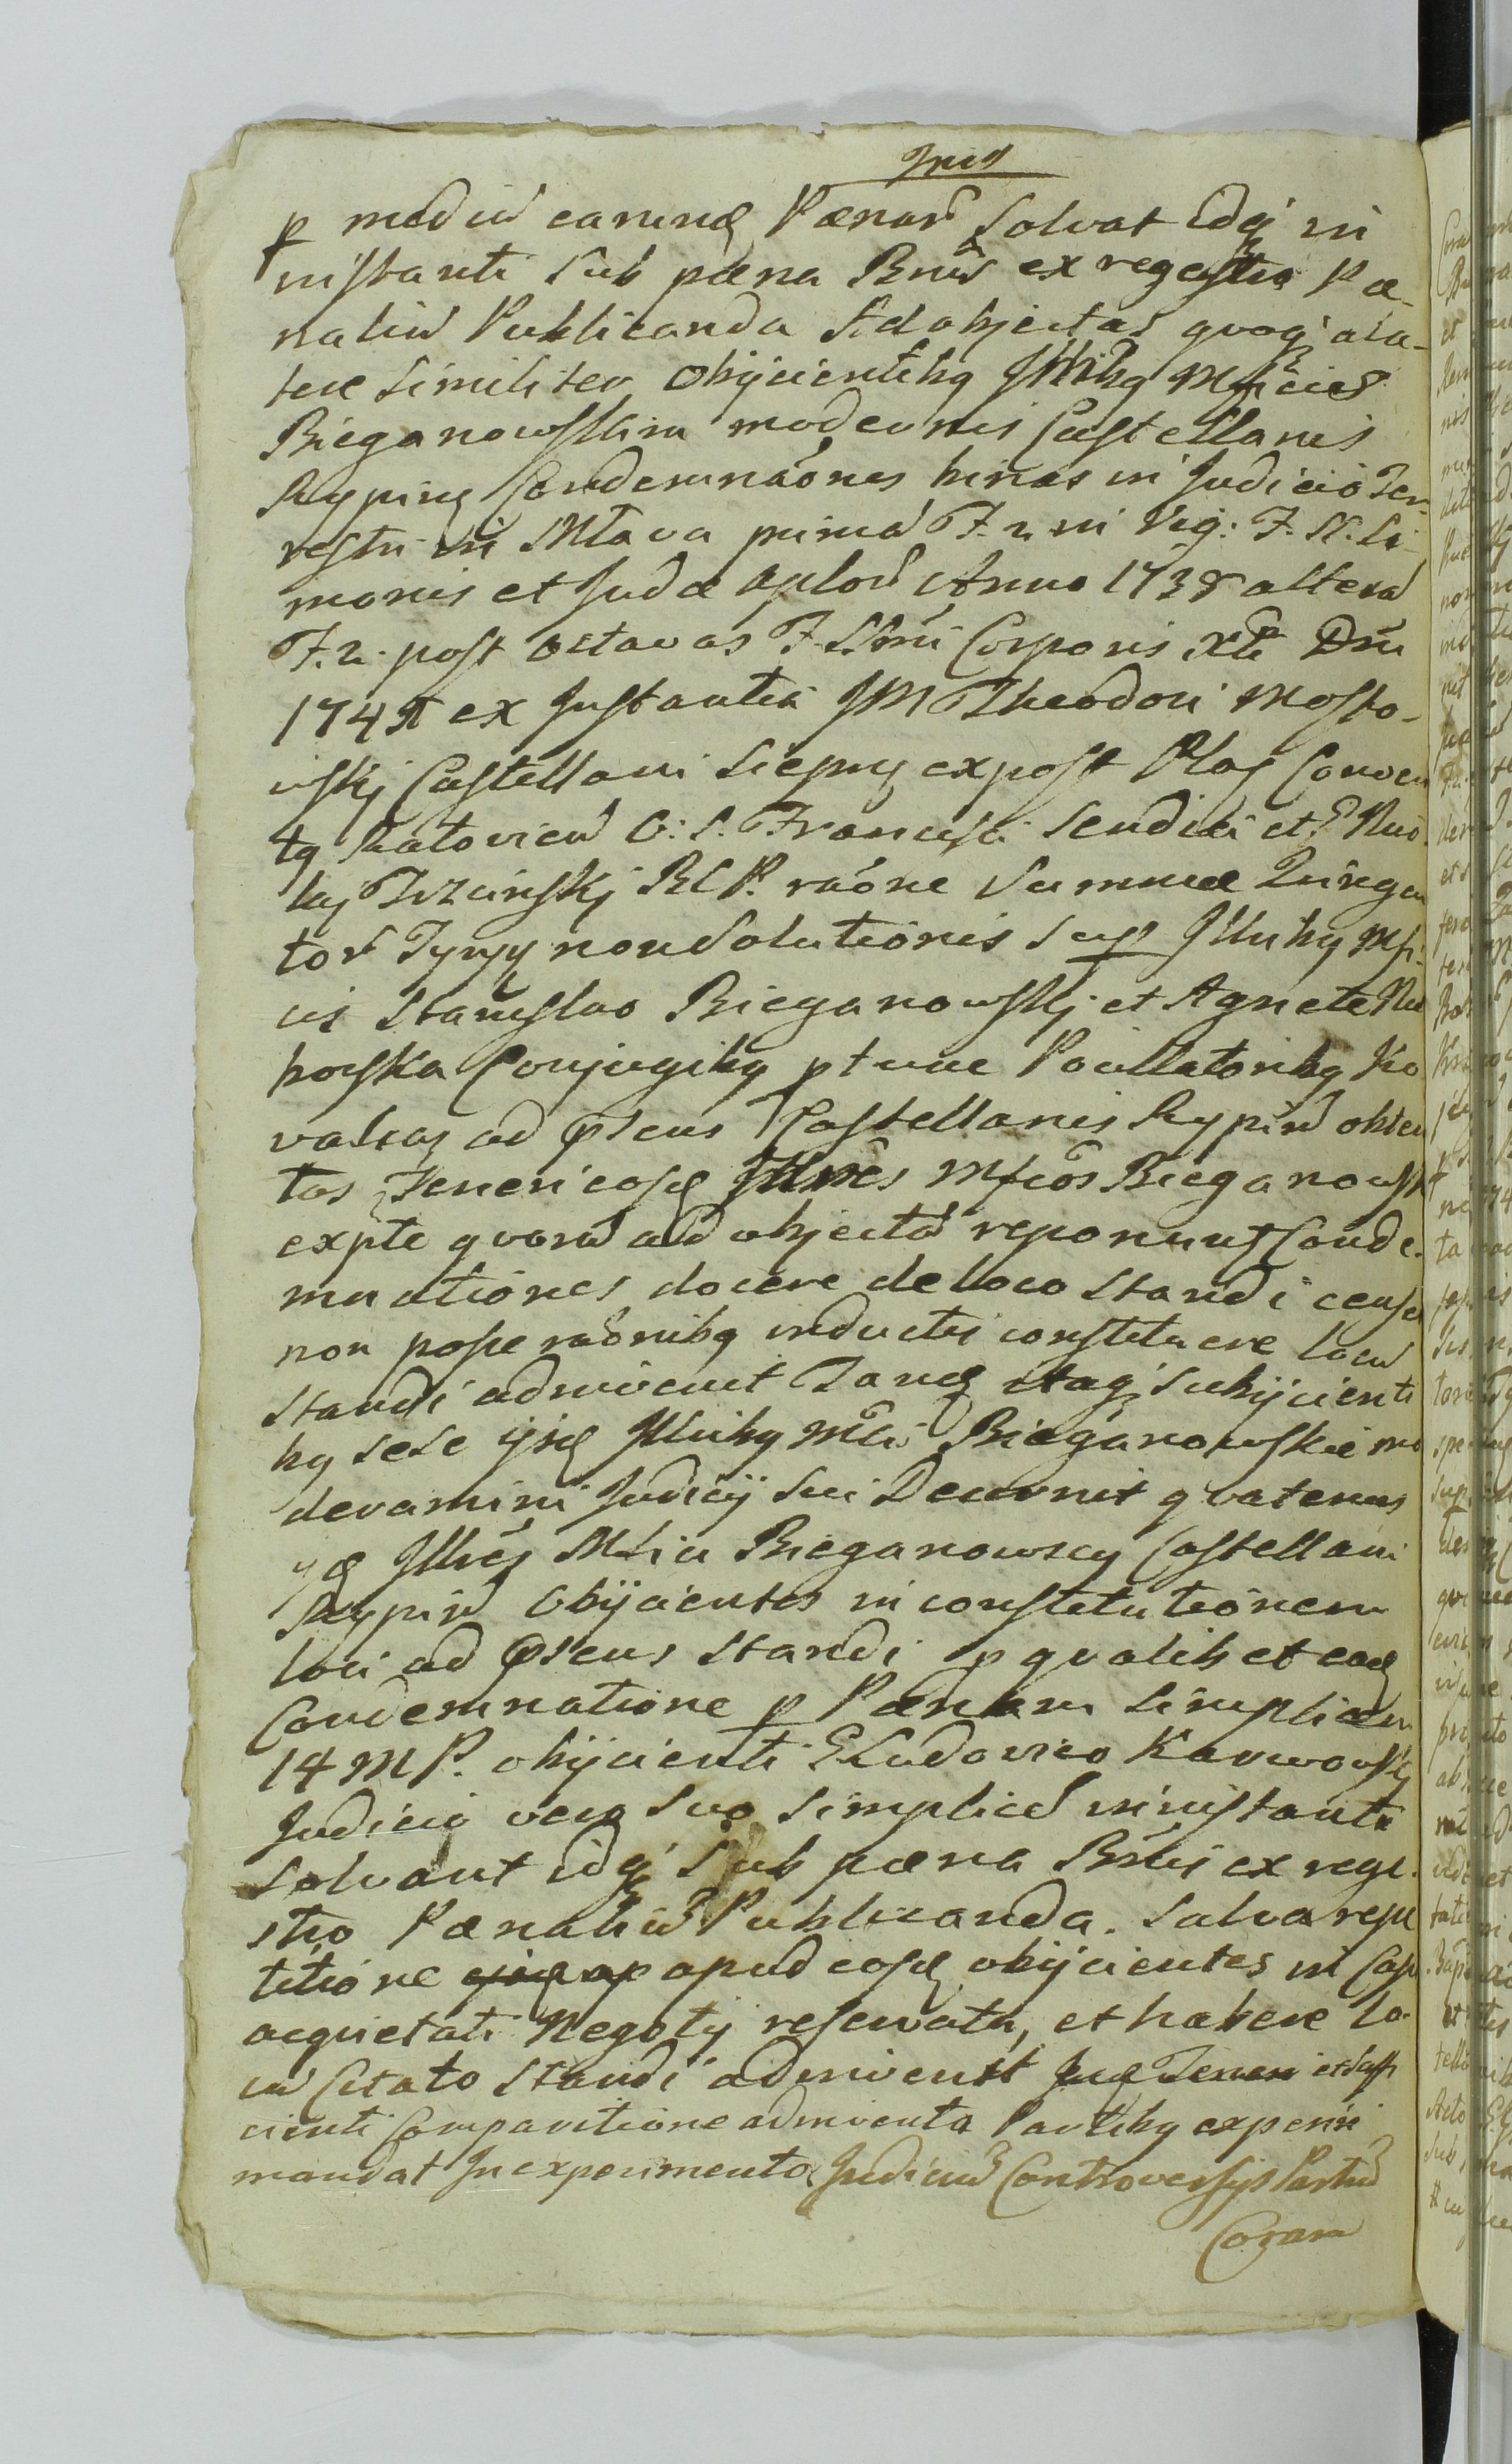 p mediu earund Pænaru Solvat idq in
instanti sub pæna Bnis ex regestro Pæ-
naliu Publicanda Ad objectas quoq a la-
tere similiter Obijcientibq Illibq Mficis
Bieganowskim modernis Castellanis
Rypinen Condemnaones binas in Judicio Ter-
restri in Mława prima F. 2 in Vig: F. SS. Si-
monis et Judæ Aplor Anno 1738 altera
F. 2. post octavas F. SSmi Corporis Xti Dni
174 ex Instantia JM Theodori Mosto-
wskj Castellani Sierpcz ex post Plos Conven
tq Ratovien O: S. Francisci Sendici et G Nico
laj Trzcinskj RCP. raone Summæ Quingen
tor Tynf nonsolutionis sup Illribq Mfi-
cis Stanislao Bieganowskj et Agnete Nie
borska Conjugibq p tunc Pocillatoribq Ko
valien ad psens Castellanis Rypin obten
tas Teneri eosd Illres Mficos Bieganowsk
ex pte quoru ad objecta reponunt Conde-
mnationes docere de loco standi censen
non posse raonibq inductis constituere locu
standi adinvenit Tand itaq Subijcienti
bq sese ijsd Illribq Mcis Bieganowskie mo
deramini Judicij sui Decernit quatenus
ijd Illres Mfici Bieganowscy Castellani
Rypin Obijcientes in constitutionem
loci ad psens standi p qualibet ead
Condemnatione p Pænam simplicem
14 MP. obijcienti G Ludovico Karwowskj
Judicio vero suo simplice in instanti
Solvant idq sub pæna Bnis ex rege-
stro Pænaliu Publicanda. Salva repe
titione apud eosd obijcientes in Casu
acquietati Negotij reservata, et habere lo-
cu Citato standi adinvenit Teneri et Suffi
cienti Comparitione adinventa Partibq experiri
mandat In experimento Judiciu Controversijs Partiu
Coram